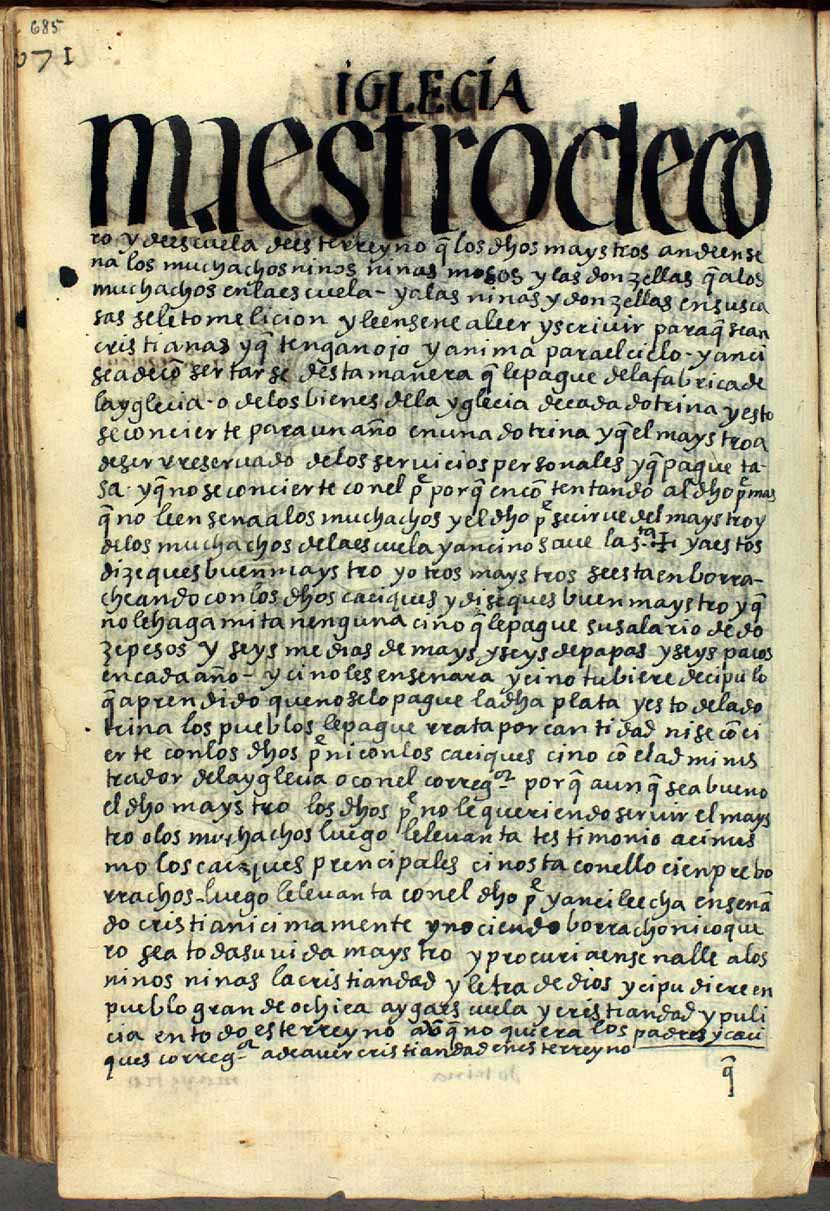 685
671
IGLECÍA
maestro de co
ro y de escuela deesterreyno q̃ los dhos maystros an de ense
na los muchachos ninos ninas mosos y las donzellas q̃ a los
muchachos en la escuela - y a las ninas y donzellas en sus ca
sas se le tome licion y le ensene a leer y scrivir para q̃ sean
cristianas y q̃ tengan ojo y anima para el cielo - y anci
sea de cõ sertarse desta manera q̃ le pague de la fabrica de
la yglecia - o de los bienes de la yglecia de cada dotrina y esto
se concierte para un año en una dotrina y q̃ el maystro a
de ser rreservado de los servicios personales y q̃ pague ta-
sa - y q̃ no se concierte con el pe porq̃ en cõtentando al dho pe mas
q̃ no le ensena a los muchachos y el dho pe se cirue del maystro y
de los muchachos de la escuela y anci no saue la sta ✠ y a estos
dize ques buen maystro y otros maystros se esta enborra-
cheando con los dhos caciques y dise ques buen maystro y q̃
no le haga mita nenguna cino q̃ le pague su salario de do
ze pesos y seys medias de mays y seys de papas y seys patos
en cada año - y ci no les ensenara y ci no tubiere decipulo
q̃ aprendido que no se lo pague la dha plata y esto de la do
trina los pueblos le pague rrata por cantidad ni se cõci
erte con los dhos pe ni con los caciques cino cõ el adminis
trador de la yglecia o con el corregor porq̃ aunq̃ sea bueno
el dho maystro los dhos pe no le queriendo seruir el mays
tro o los muchachos luego le leuanta testimonio acimis
mo los caciques prencipales ci no sta con ello cienpre bo
rrachos - luego le leuanta con el dho pe y anci le echa ensenã
do cristianicimamente y no ciendo borracho ni coque
ro sea toda su uida maystro y procuri a ensenalle a los
ninos ninas la cristiandad y letra de dios y ci pudiere en
pueblo grande o chica ayga escuela y cristiandad y puli
cia en todo esterreyno aũq̃ no quiera los padres y caci
ques corregor a de auer cristiandad en esterreyno
q̃